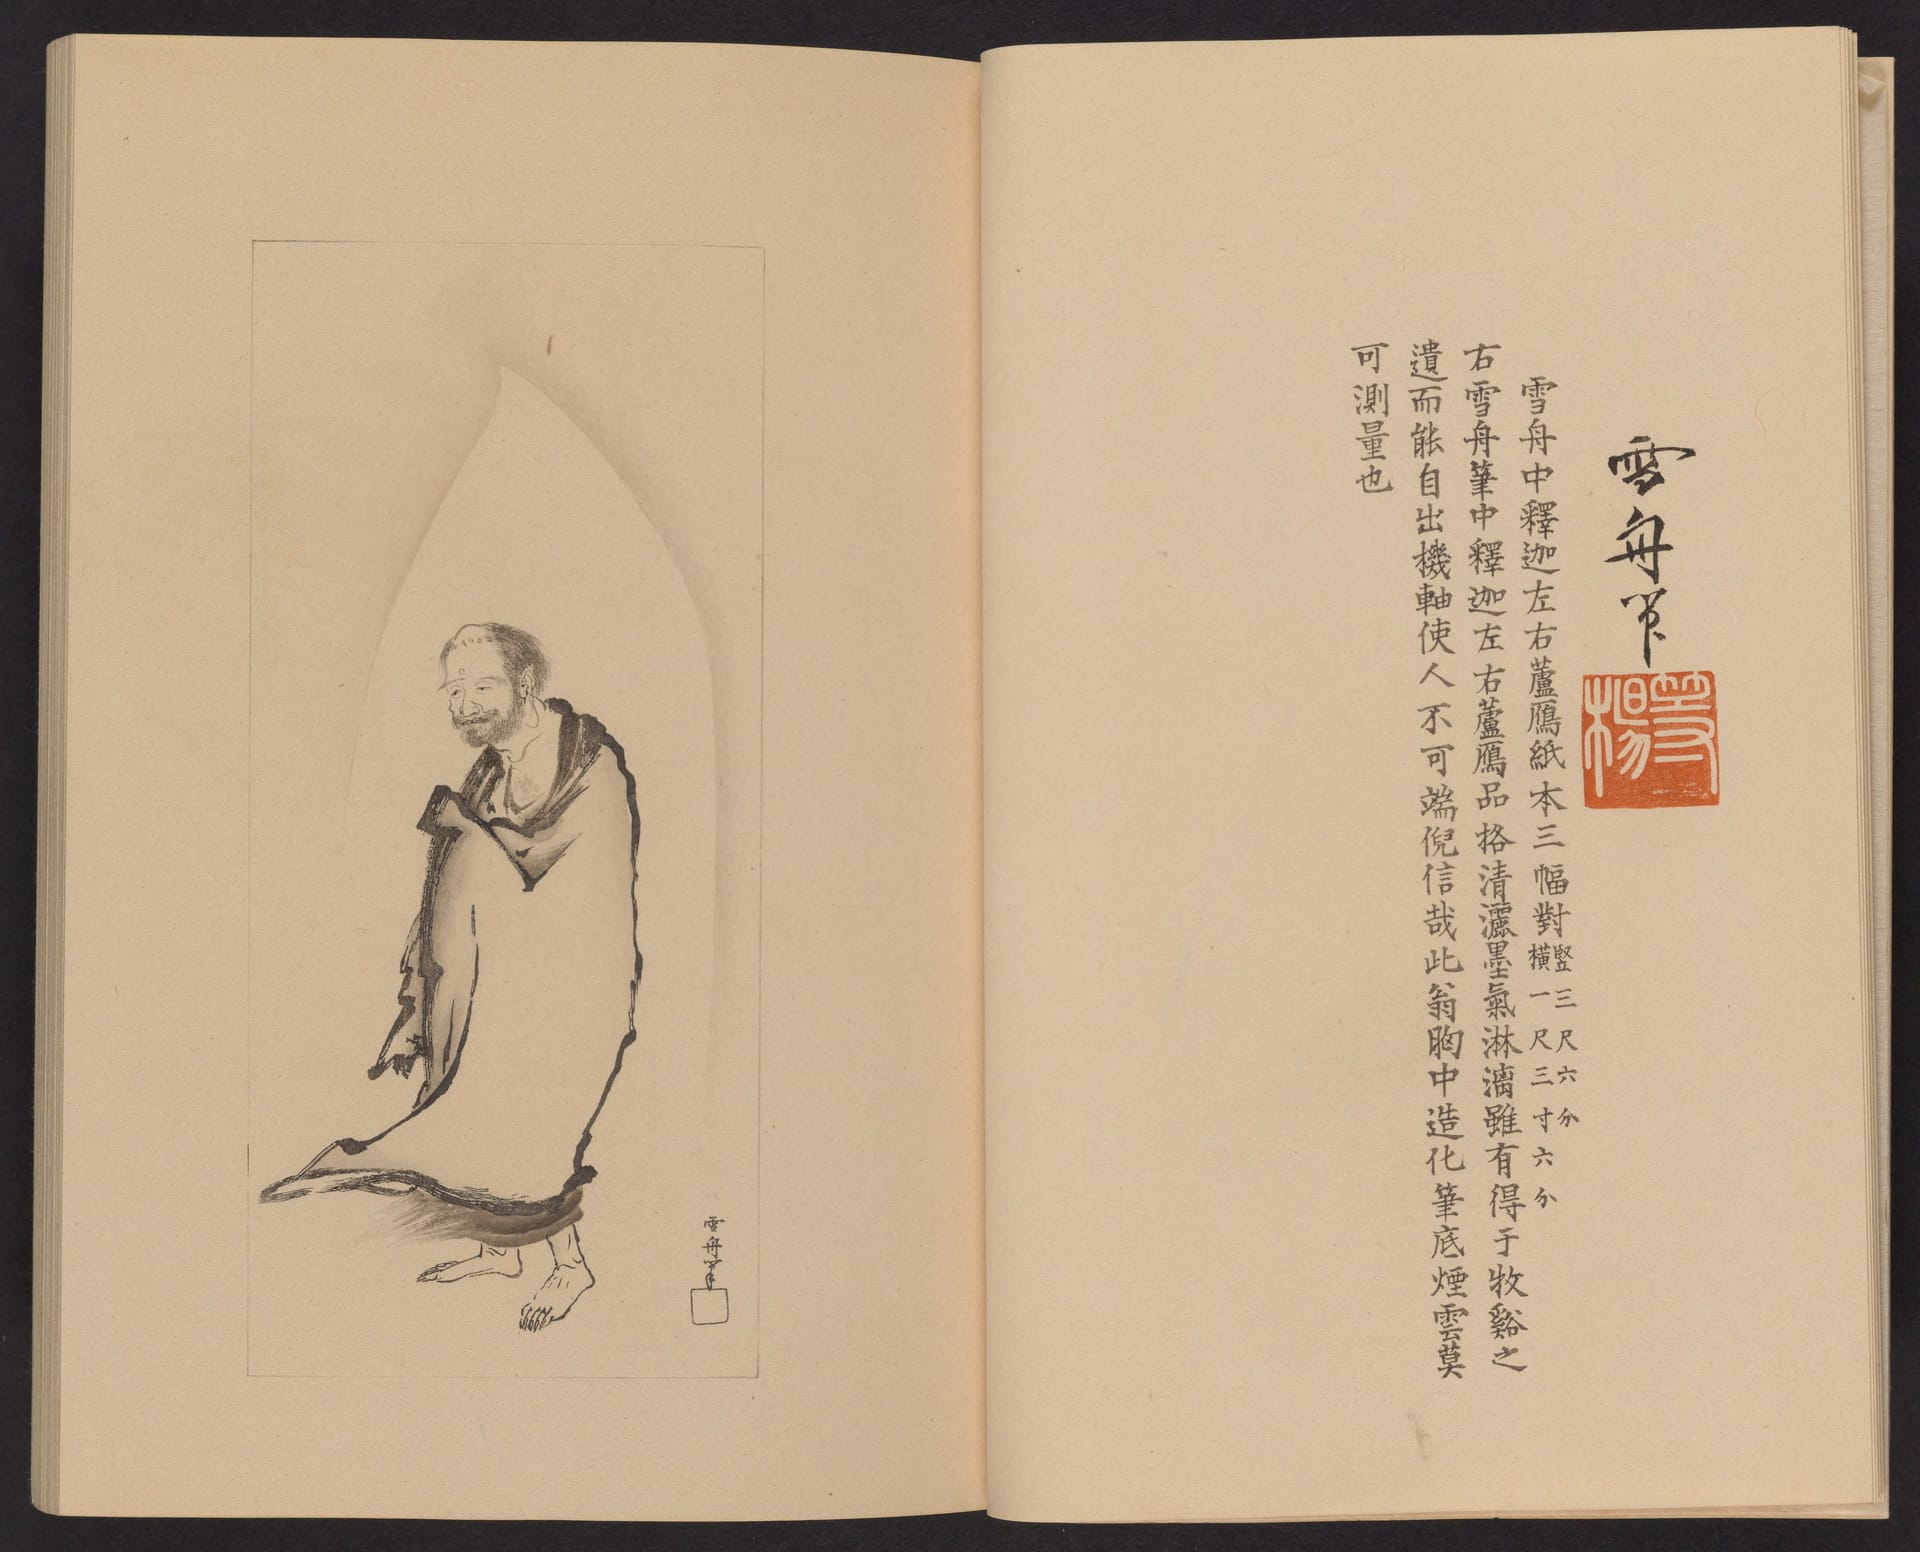 雪舟笔
等楊
雪舟中釋迦左右蘆鴈紙本三幅對竪三尺六分
橫一尺三寸六分
右雪舟筆中釋迦左右蘆鴈品格清灑墨氣淋漓雖有得于牧谿之
遺而能自出機軸使人不可端倪信哉此翁胸中造化筆底煙雲莫
可測量也
雪舟筆